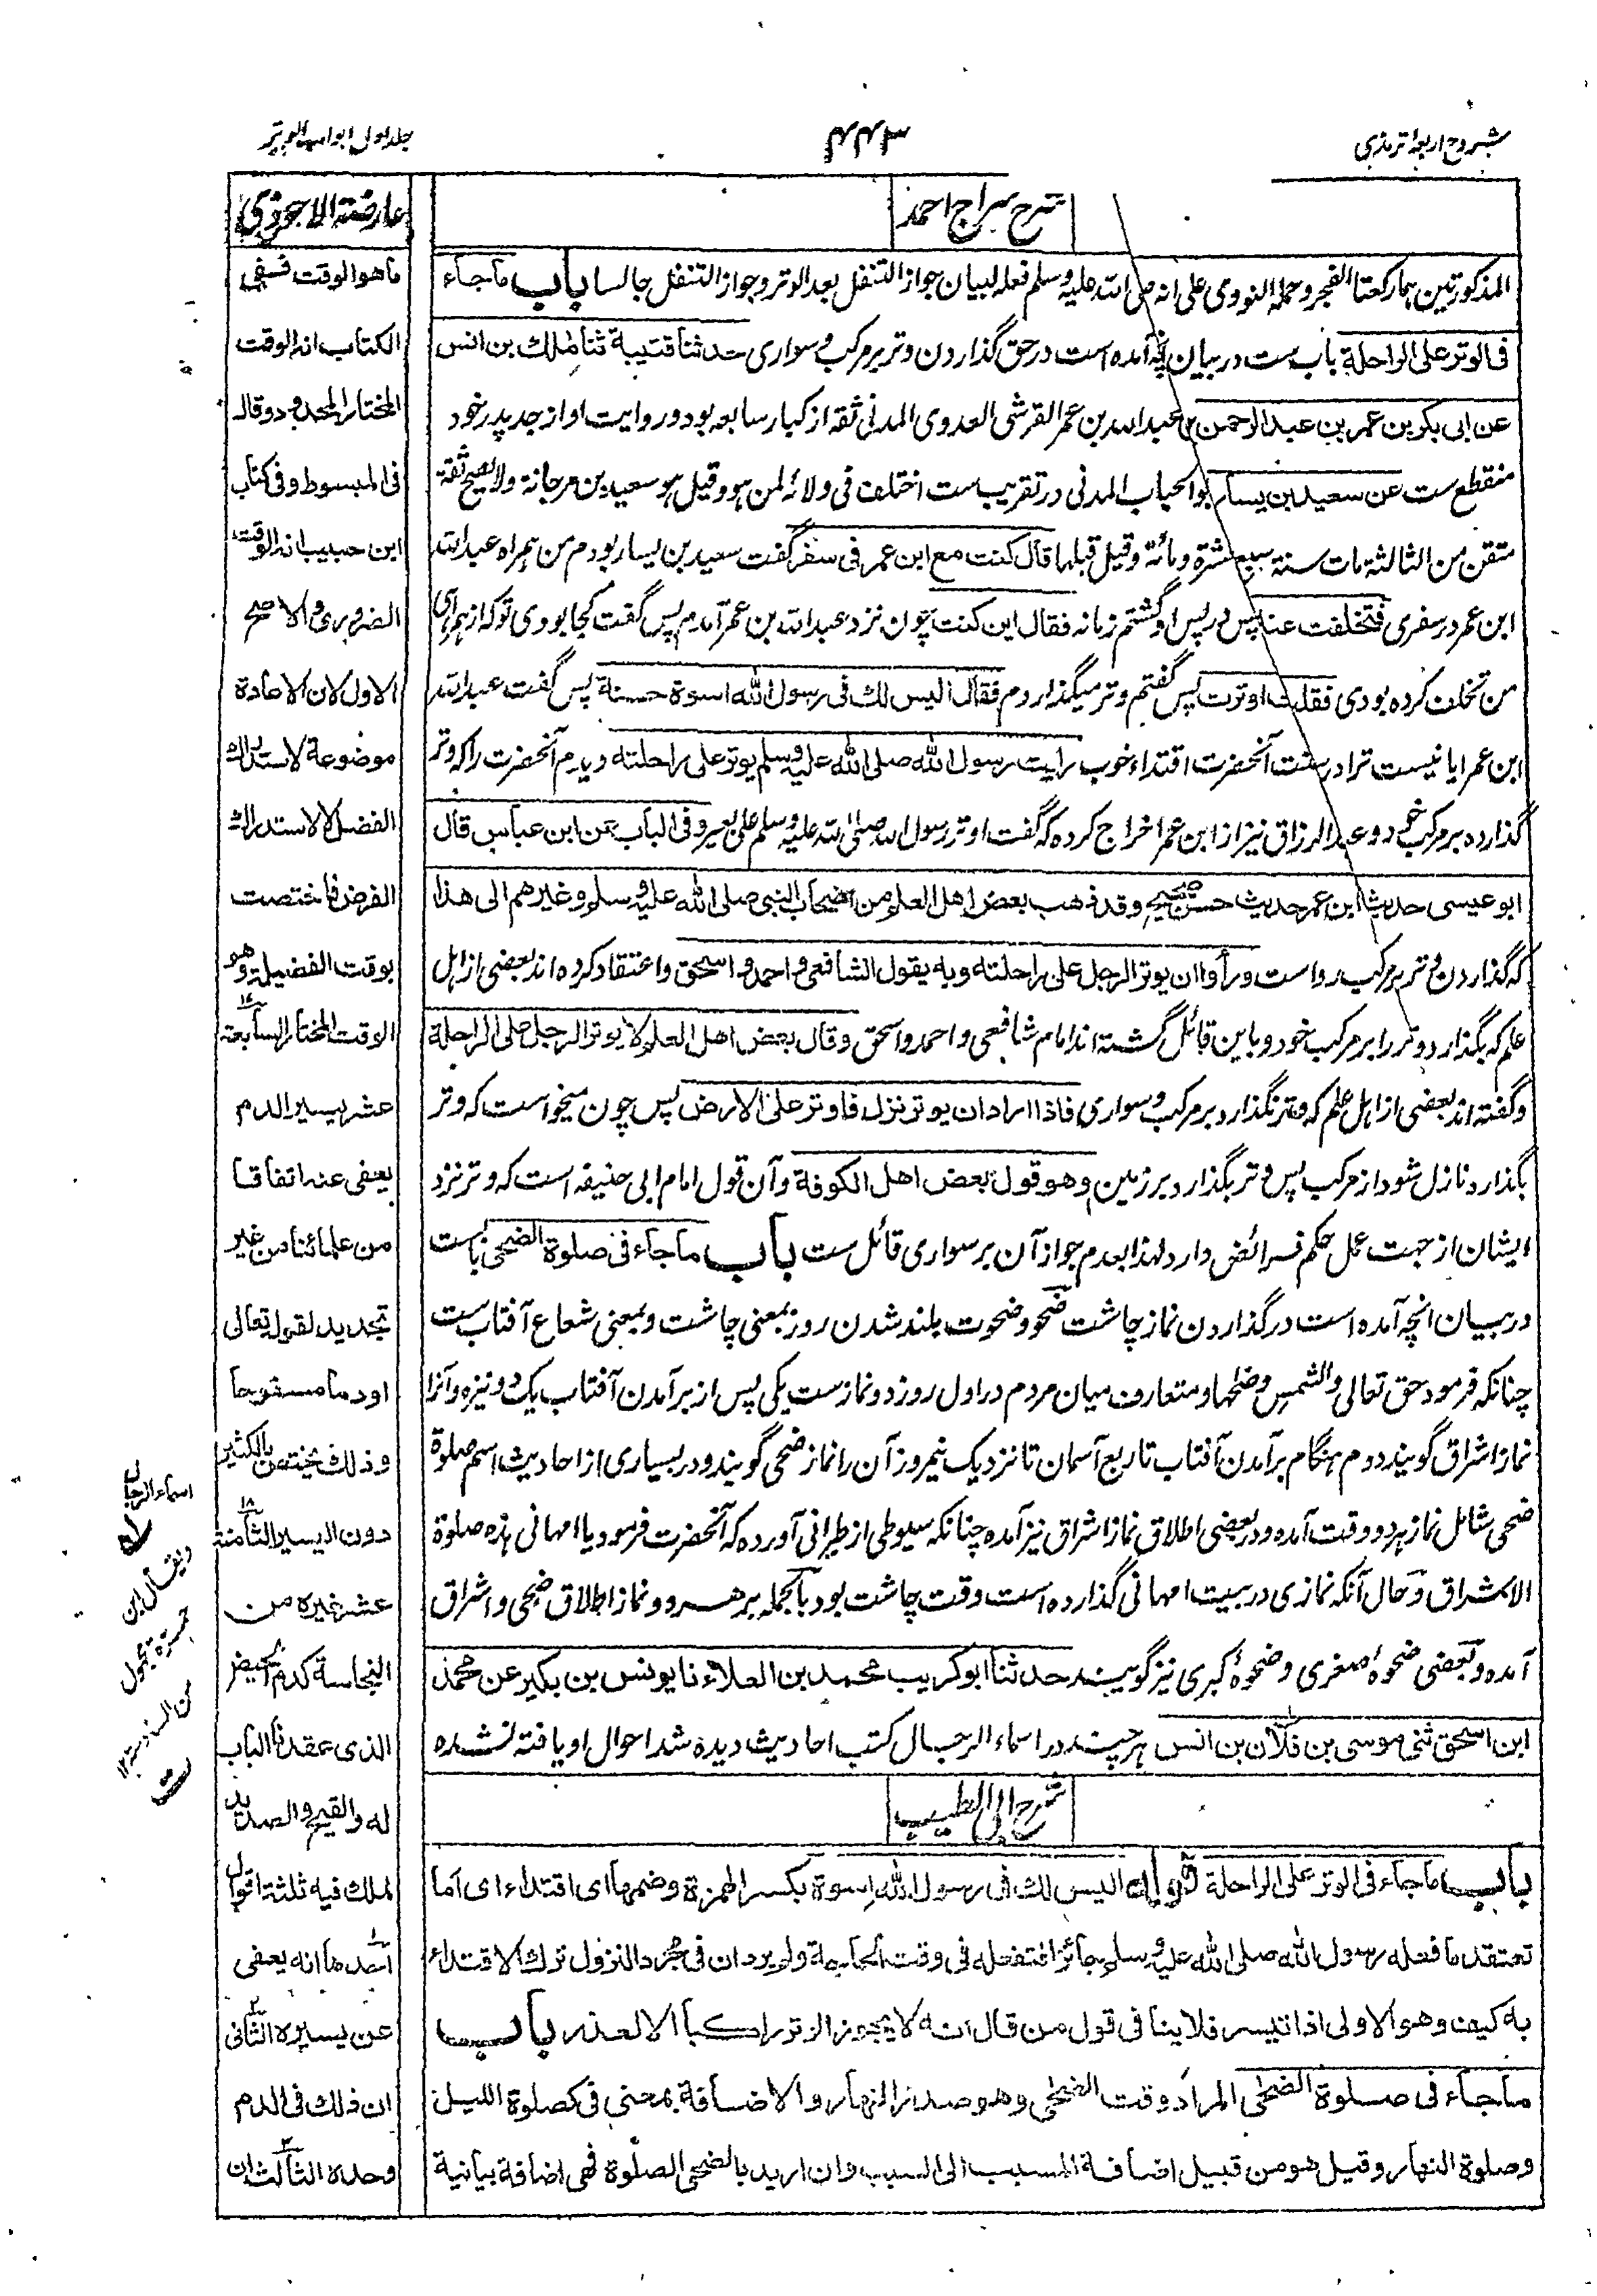 شروح اربعۂ ترمذی
۴۴۳
جلد اول ابواب الوتر
شرح سراج احمد
المذکورتین ہما رکعتا الفجر وحمله النووی علی انه صلی الله علیه وسلم فعله لبیان جواز التنفل بعد الوتر وجواز التنفل جالسا باب ماجاء
فی الوتر علی الراحلة باب ست در بیان آنچه آمده است در حق گذاردن وتر بر مرکب و سواری حدثنا قتیبة ثنا مالک بن انس
عن ابی بکر بن عمر بن عبد الرحمن بن عبد الله بن عمر القرشی العدوی المدنی ثقه از کبار سابعه بود و روایت او از جد پدر خود
منقطع ست عن سعید بن یسار ابو الحباب المدنی در تقریب ست اختلف فی ولائه لمن هو وقیل هو سعید بن مرجانة ولا یصح ثقة
متقن من الثالثة مات سنة سبع عشرة ومائة وقیل قبلها قال کنت مع ابن عمر فی سفر گفت سعید بن یسار بودم من ہمراه عبد الله
ابن عمر در سفری فتخلفت عنه پس در پس او گشتم زمانه فقال این کنت چون نزد عبد الله بن عمر آمدم پس گفت کجا بودی تو که از ہمراہی
من تخلف کرده بودی فقلت اوترت پس گفتم وتر میگذاردم فقال الیس لک فی رسول الله اسوة حسنة پس گفت عبد الله
ابن عمر ایا نیست ترا در سنت آنحضرت اقتداء خوب رایت رسول الله صلی الله علیه وسلم یوتر علی راحلته دیدم آنحضرت را که وتر
گذارده بر مرکب خود و عبد الرزاق نیز از ابن عمر اخراج کرده که گفت اوتر رسول الله صلی الله علیه وسلم علی بعیر وفی الباب عن ابن عباس قال
ابو عیسی حدیث ابن عمر حدیث حسن صحیح وقد ذهب بعض اهل العلم من اصحاب النبی صلی الله علیه وسلم وغیرهم الی هذا
که گذاردن وتر بر مرکب رواست ورأوا ان یوتر الرجل علی راحلته وبه یقول الشافعی واحمد واسحق واعتقاد کرده اند بعضی از اہل
علم که بگذارد وتر را بر مرکب خود و باین قائل گشته اند امام شافعی و احمد و اسحق وقال بعض اهل العلم لا یوتر الرجل علی الراحلة
و گفته اند بعضی از اہل علم که وتر نگذارد بر مرکب و سواری فاذا اراد ان یوتر نزل فاوتر علی الارض پس چون میخواست که وتر
بگذارد نازل شود از مرکب پس وتر بگذارد بر زمین وهو قول بعض اهل الکوفة و آن قول امام ابی حنیفه است که وتر نزد
ایشان از جهت عمل حکم فرائض دارد لهذا بعدم جواز آن بر سواری قائل ست باب ماجاء فی صلوة الضحی باب ست
در بیان انچه آمده است در گذاردن نماز چاشت ضحو و ضحوت بلند شدن روز بمعنی چاشت و بمعنی شعاع آفتاب ست
چنانکه فرمود حق تعالی والشمس وضحها و متعارف میان مردم در اول روز دو نماز ست یکی پس از برآمدن آفتاب یک دو نیزه و آنرا
نماز اشراق گویند دوم ہنگام برآمدن آفتاب تا ربع آسمان تا نزدیک نیمروز آن را نماز ضحی گویند و در بسیاری از احادیث اسم صلوة
ضحی شامل نماز ہر دو وقت آمده و در بعضی اطلاق نماز اشراق نیز آمده چنانکه سیوطی از طبرانی آورده که آنحضرت فرمود یا ام ہانی ہذه صلوة
الاشراق و حال آنکه نمازی در بیت ام ہانی گذارده است وقت چاشت بود بالجمله بر ہر دو نماز اطلاق ضحی و اشراق
آمده و بعضی ضحوۂ صغری و ضحوۂ کبری نیز گویند حدثنا ابو کریب محمد بن العلاء نا یونس بن بکیر عن محمد
ابن اسحق ثنی موسی بن فلان بن انس ہر چند در اسماء الرجال کتب احادیث دیده شد احوال او یافته نشده
شرح ابی الطیب
باب ماجاء فی الوتر علی الراحلة قوله الیس لک فی رسول الله اسوة بکسر الهمزة وضمها ای اقتداء ای اما
تعتقد ما فعله رسول الله صلی الله علیه وسلم جائزا فتفعله فی وقت الحاجة ولم یرد ان فی مجرد النزول ترک الاقتداء
به کیف وهو الاولی اذا تیسر فلا ینافی قول من قال انه لا یجوز الوتر راکبا الا لعذر باب
ماجاء فی صلوة الضحی المراد وقت الضحی وهو صدر النهار والاضافة بمعنی فی کصلوة اللیل
وصلوة النهار وقیل هو من قبیل اضافة المسبب الی السبب وان ارید بالضحی الصلوة فهی اضافة بیانیة
عارضة الاحوذی
ما هو الوقت ففی
الکتاب انه الوقت
المختار المحدود وقال
فی المبسوط وفی کتاب
ابن حبیب انه الوقت
الضروری والاصح
الاول لان الاعادة
موضوعة لاستدراک
الفضل لا لاستدراک
الفرض فاختصت
بوقت الفضیلة وهو
الوقت المختار السابعة
عشر یسیر الدم
یعفی عنه اتفاقا
من علمائنا من غیر
تحدید لقوله تعالی
او دما مسفوحا
وذلک یختص بالکثیر
دون الیسیر الثامنة
عشر غیره من
النجاسة کدم الحیض
الذی عقد الباب
له والقیح والصدید
لملک فیه ثلثة اقوال
احدها انه یعفی
عن یسیره الثانی
ان ذلک فی الدم
وحده الثالث ان
اسماء الرجال
ویقال ابن
حمزة مجهول
من السادسة ۱۲
ت